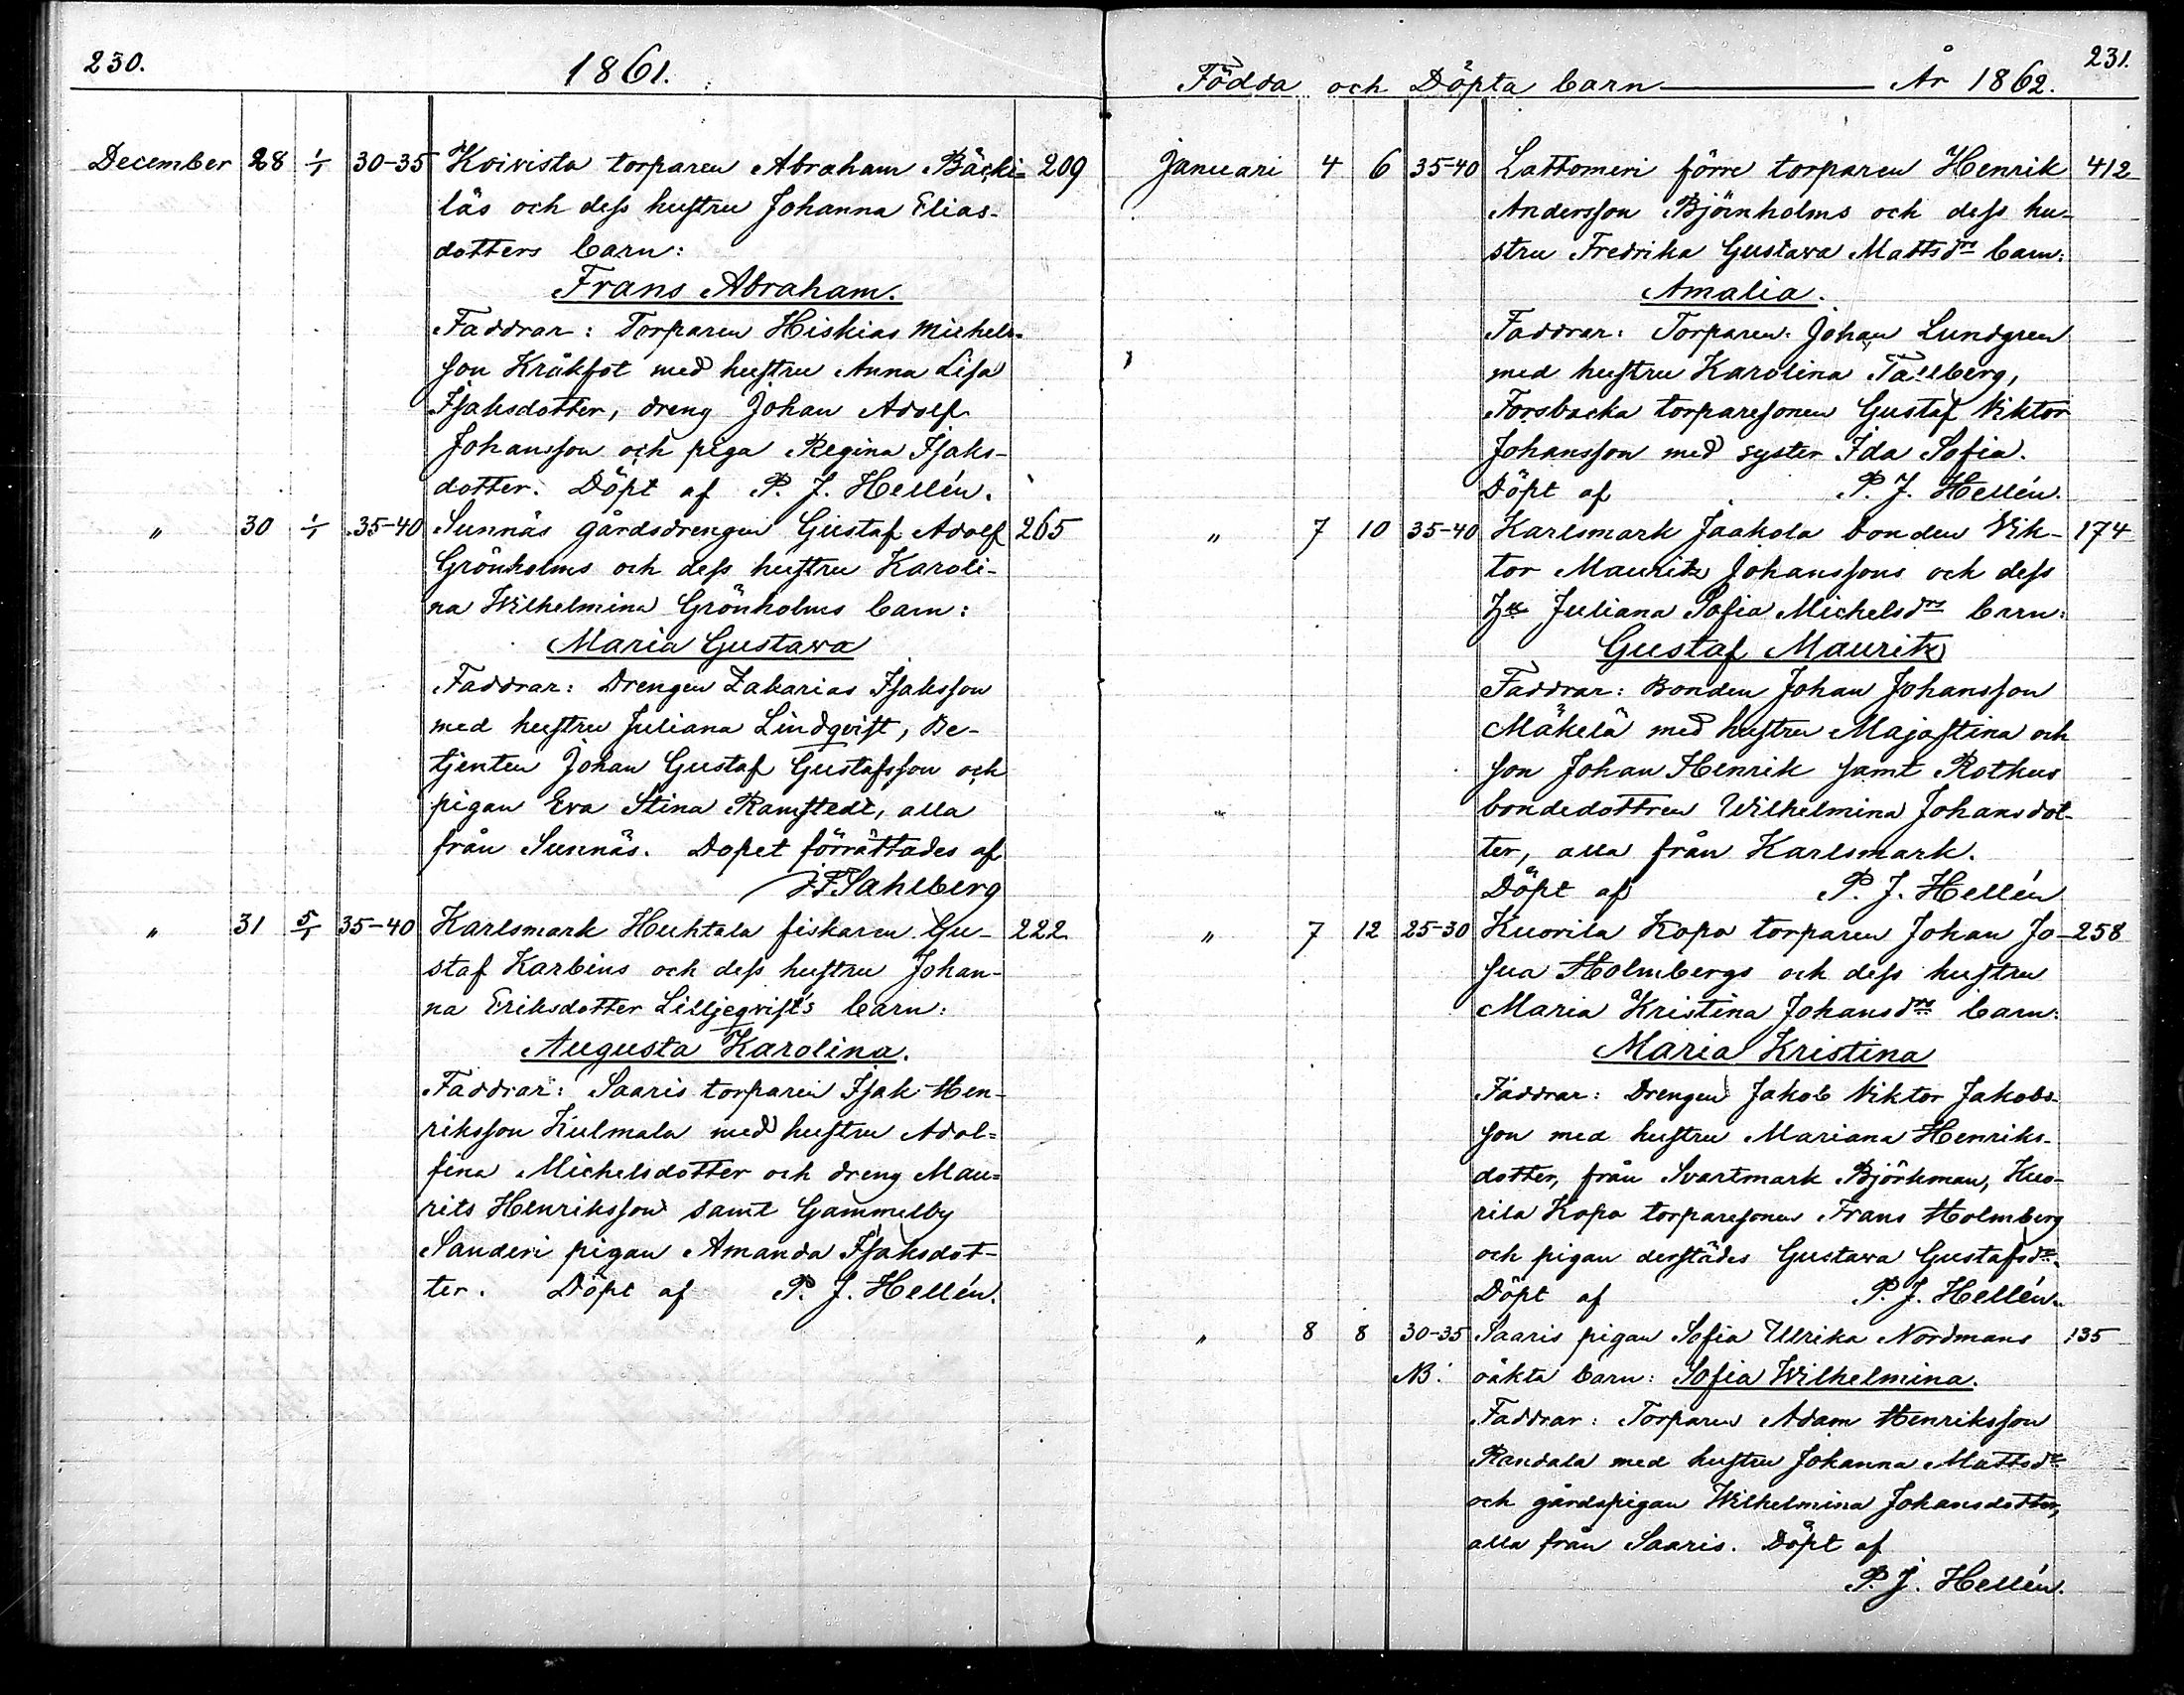 230.
1861.
December 28 1/1 30-35 Koivista torparen Abraham Bäcki= 209
läs och dess hustru Johanna Elias-
dotters barn:
Frans Abraham.
Faddrar: Torparen Hiskias Michels-
son Kråkfot med hustru Anna Lisa
Isaksdotter, dreng Johan Adolf
Johansson och piga Regina Isaks-
dotter. Döpt af P. J. Hellén.
" 30 1/1 35-40 Sunnäs gårdsdrengen Gustaf Adolf 265
Grönholms och dess hustru Karoli-
na Wilhelmina Grönholms barn:
Maria Gustava
Faddrar: Drengen Zakarias Isaksson
med hustru Juliana Lindqvist, Be-
tjenten Johan Gustaf Gustafsson och
pigan Eva Stina Ramstedt, alla
från Sunnäs. Dopet förrättades af
Sahlberg
" 31 5/1 35-40 Karlsmark Huhtala fiskaren Gu- 222
staf Karbins och dess hustru Johan-
na Eriksdotter Lilljeqvist's barn:
Augusta Karolina.
Faddrar: Saaris torparen Isak Hen-
riksson Kulmala med hustru Adol=
fina Michelsdotter och dreng Mau=
rits Henriksson samt Gammelby
Sanderi pigan Amanda Isaksdot-
ter. Döpt af P. J. Hellén.
231.
Födda och Döpta barn År 1862.
Januari 4 6 35-40 Lattomeri förre torparen Henrik 412
Andersson Björnholms och dess hu-
stru Fredrika Gustava Mattsdrs barn:
Amalia.
Faddrar: Torparen Johan Lundgren
med hustru Karolina Tallberg,
Forsbacka torparesonen Gustaf Viktor
Johansson med syster Ida Sofia.
Döpt af P. J. Hellén.
" 7 10 35-40 Karlsmark Jaakola bonden Vik- 174
tor Mauritz Johanssons och dess
Juliana Sofia Michelsdrs barn:
Gustaf Mauritz
Faddrar: Bonden Johan Johansson
Mäkelä med hustru Majastina och
son Johan Henrik samt Rothus
" bondedottren Wilhelmina Johansdot-
ter, alla från Karlsmark.
Döpt af P. J. Hellén
" 7 12 25-30 Kuorila Kopo torparen Johan Jo- 258
sua Holmbergs och dess hustru
Maria Kristina Johansdrs barn:
Maria Kristina
Faddrar: Drengen Jakob Viktor Jakobs-
son med hustru Mariana Henriks-
dotter, från Svartmark Björkman, Kuo-
rila Kopo torparesonen Frans Holmberg
och pigan derstädes Gustava Gustafsdr.
Döpt af P. J. Hellén.
" 8 8 30-35 Saaris pigan Sofia Ullrika Nordmans 135
NB. oäkta barn: Sofia Wilhelmina.
Faddrar: Torparen Adam Henriksson
Randala med hustru Johanna Mattsdr
och gårdspigan Wilhelmina Johansdotter,
alla från Saaris. Döpt af
P. J. Hellén.